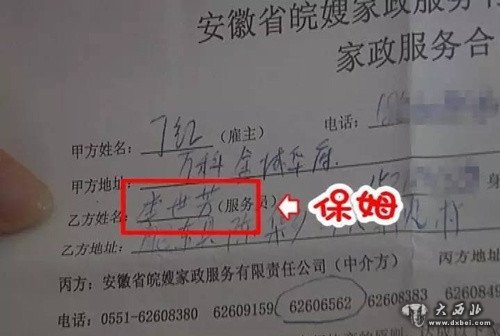 安徽省皖嫂家政服务有
家政服务合
甲方姓名：丁红（雇主） 电话：
甲方地址：万科金林华府
乙方姓名：李世芳（服务员） 保姆
乙方地址：肥东县
丙方：安徽省皖嫂家政服务有限责任公司（中介方）
电话：0551-62608380 62609159 62606562 62608383 6260849
大西北
www.dxbei.com